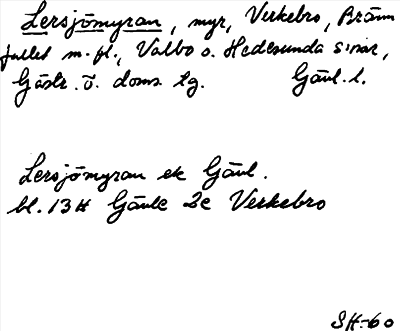 Lersjömyran, myr, Verkebro, Bränn
fallet m. fl., Valbo o. Hedesunda s:nar,
Gästr. ö. doms. lg. Gävl. l.
Lersjömyran ek Gävl.
bl. 13H Gävle 2c Verkebro
SH-60